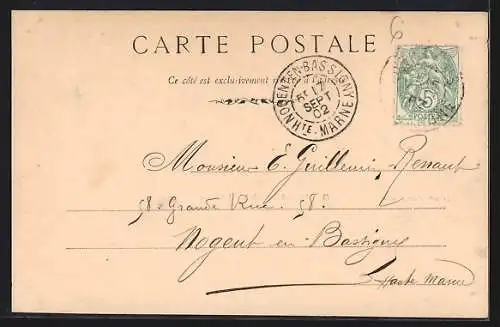 CARTE POSTALE
Ce côté est exclusivement
NOGENT-EN-BASSIGNY
17
SEPT
02
HTE MARNE
5
POSTES
Monsieur E. Guillemin Renaut
58 Grande Rue 58
Nogent en Bassigny
Haute Marne